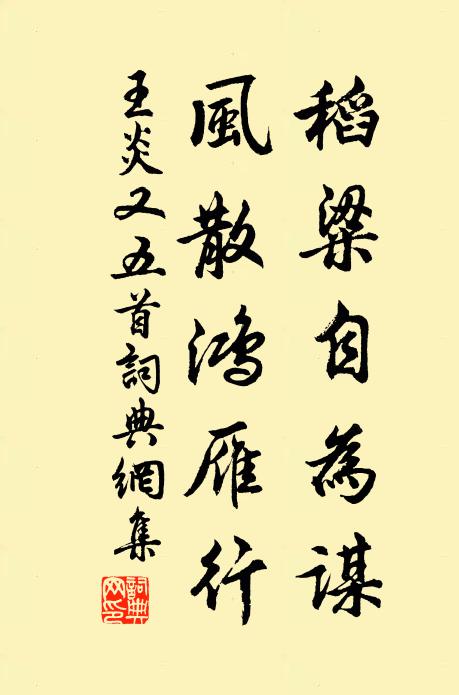 稻粱自為謀
風散鴻雁行
王炎又五首詞典網集
詞典
網印